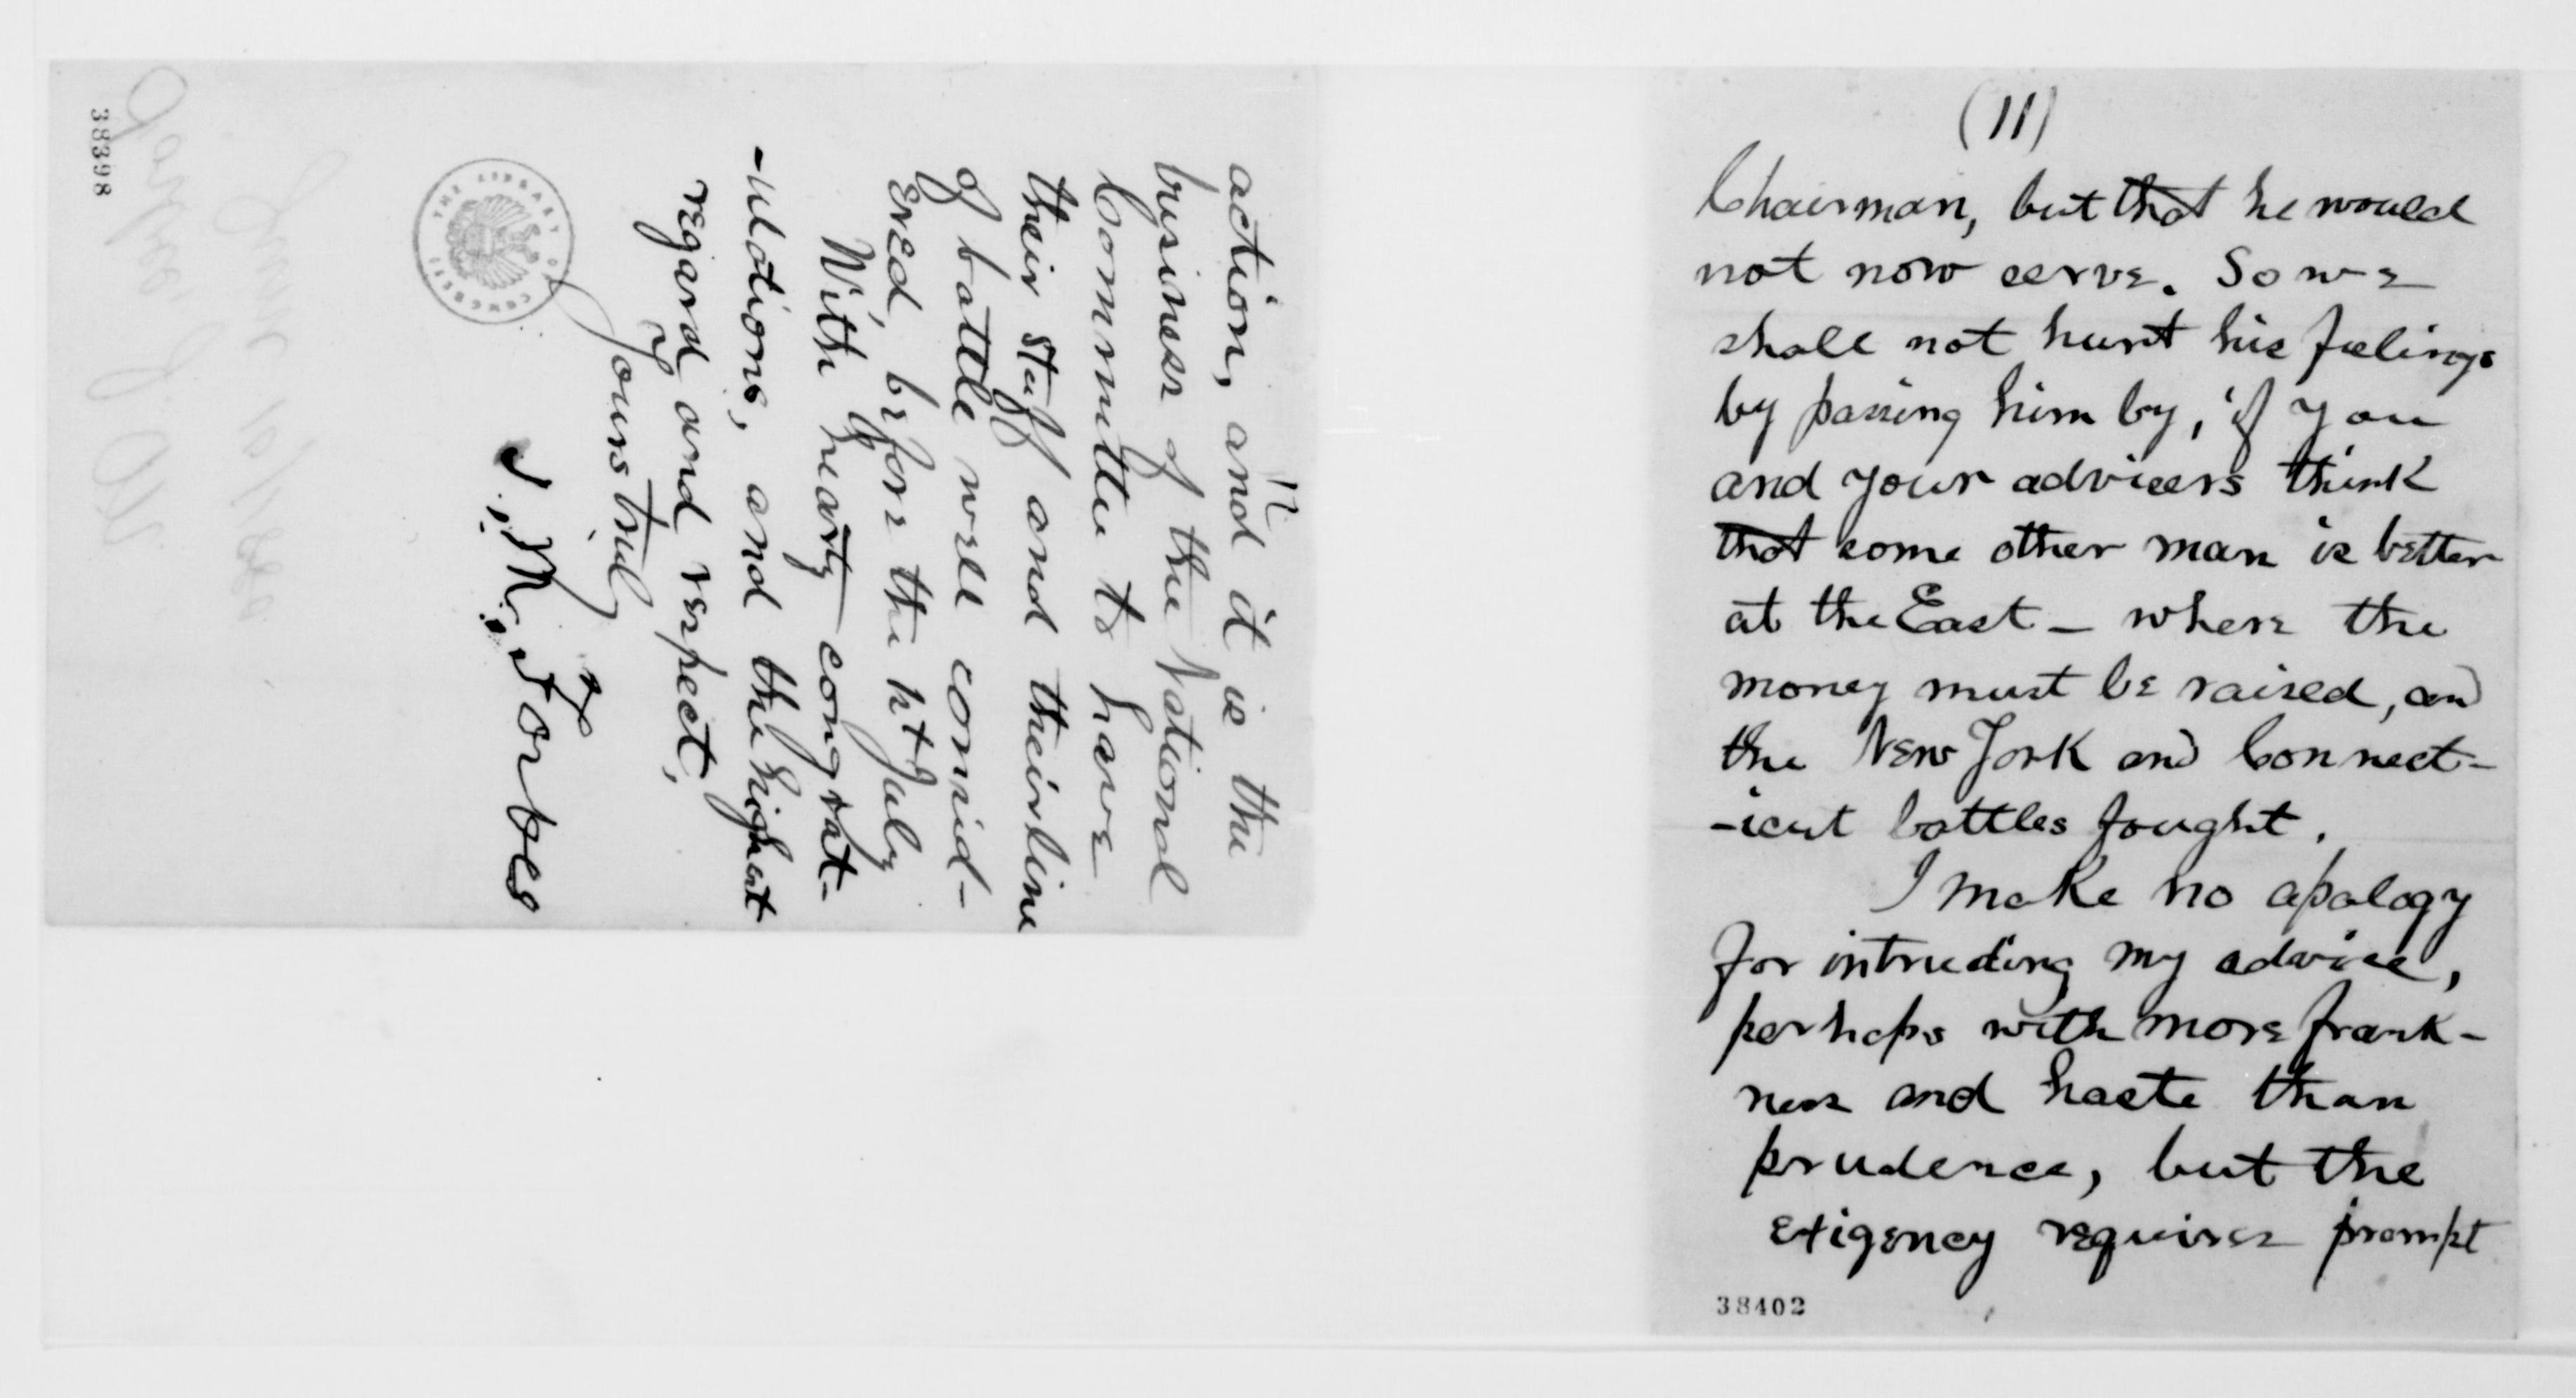 (11)
Chairman, but that he would
not now serve. So we
shall not hurt his feelings
by passing him by, if you
and your advisers think
that some other man is better
at the East – where the
money must be raised, and
the New York and Connect-
-icut battles fought.
I make no apology
for intruding my advice,
perhaps with more frank-
ness and haste than
prudence, but the
exigency requires prompt
38402
12
action, and it is the
business of the National
Committee to have
their staff and their line
of battle well consid-
ered, before the 1st July
With hearty congrat-
-ulations, and the highest
regard and respect,
Yours truly
J. M. Forbes
THE LIBRARY OF CONGRESS
38398